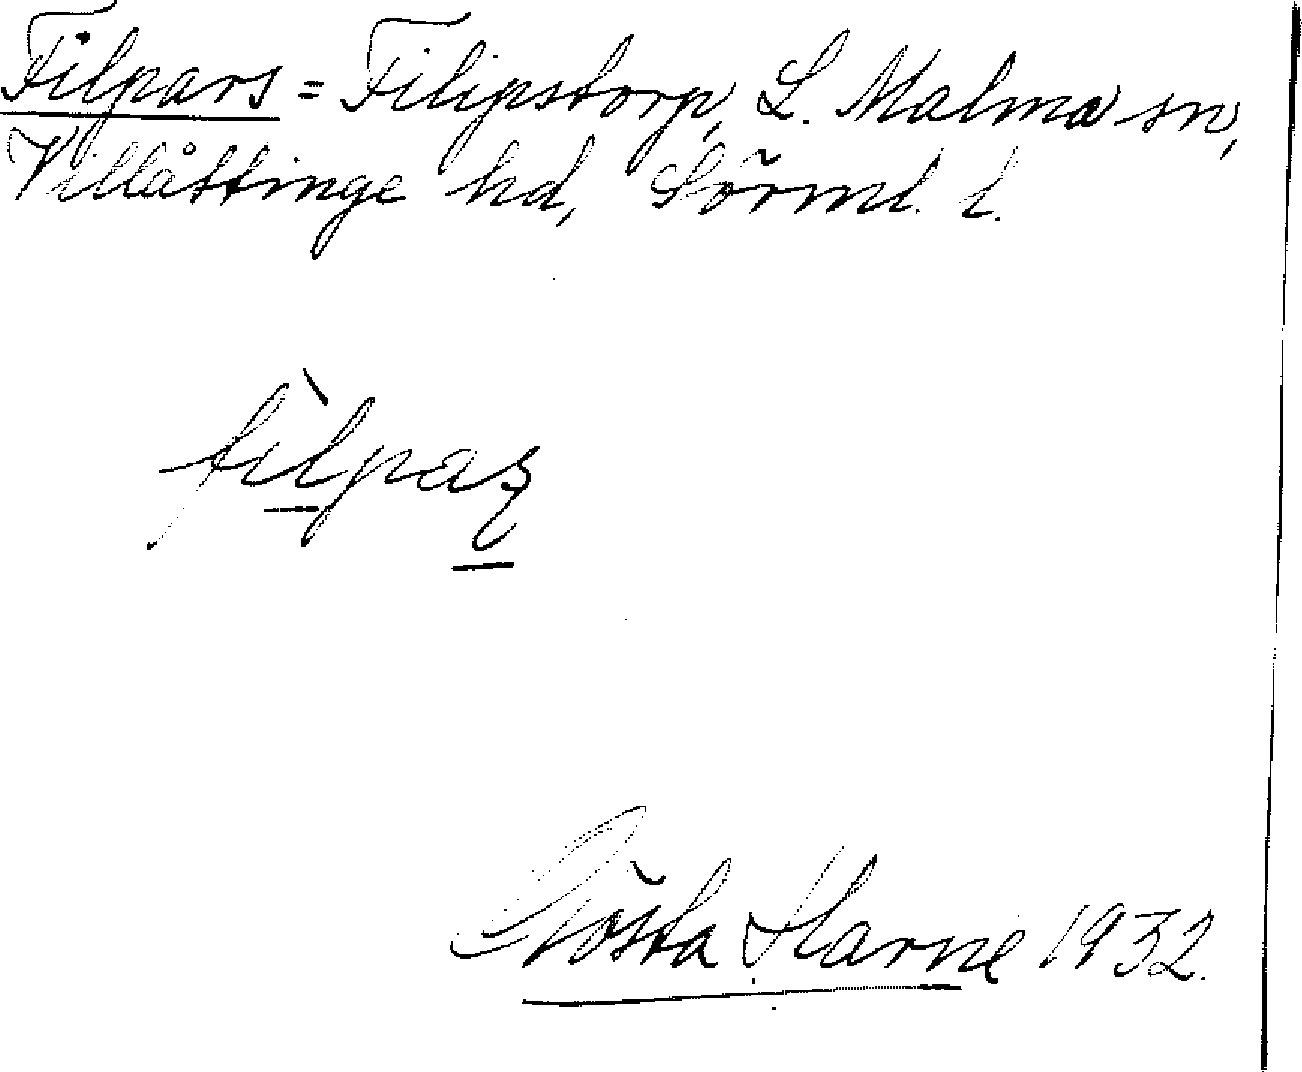 Filpars = Filipstorp, L. Malma sn,
Villåttinge hd, Sörml. l.
fìlpaʂ
Gösta Harne 1932.